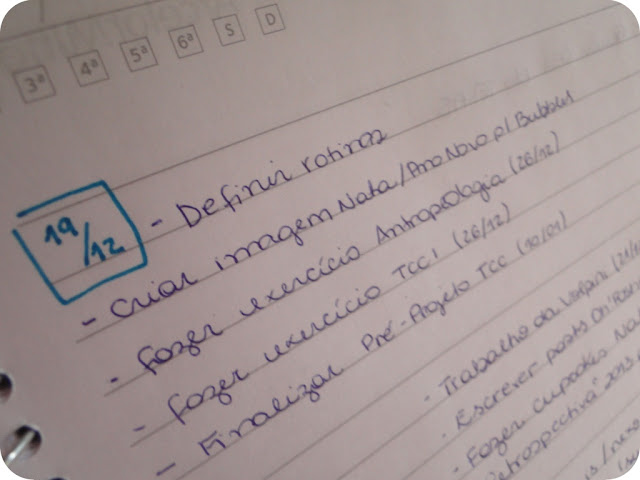 3ª 4ª 5ª 6ª S D
19/12
- Definir rotinas
- Criar imagem Natal/Ano Novo p/ Bubbles
- Fazer exercício Antropologia (26/12)
- Fazer exercício TCC1 (26/12)
- Finalizar Pré-Projeto TCC (10/01)
- Trabalho da
- Escrever posts
- Fazer cupcakes
Retrospectiva 2013